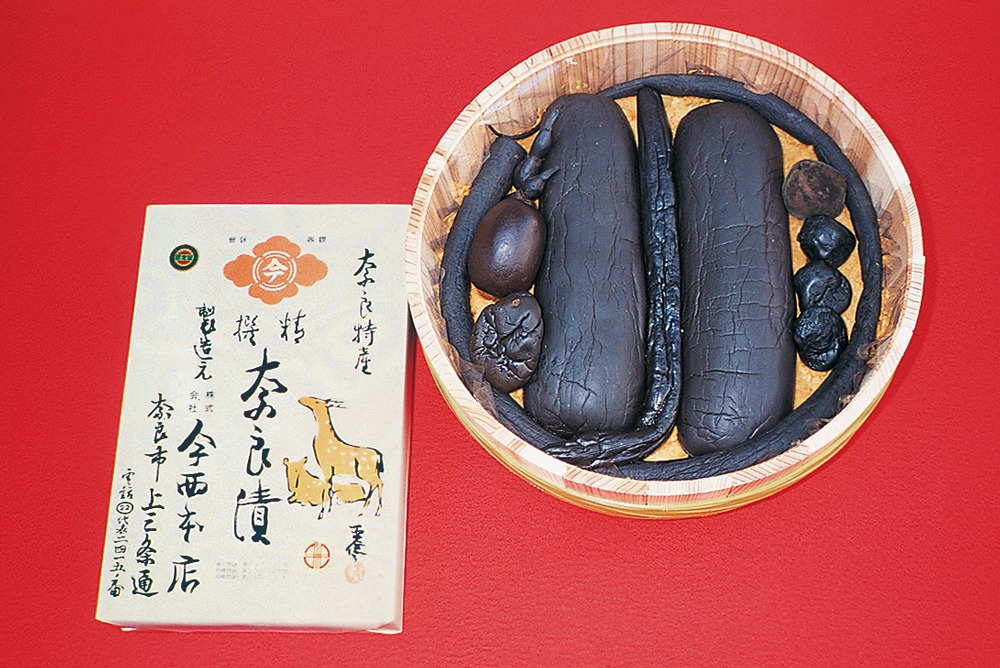 奈良特産
精
撰
奈良漬
今
製造元
株式
会社
今西本店
奈良市上三条通
電話㉒代表二四一五番